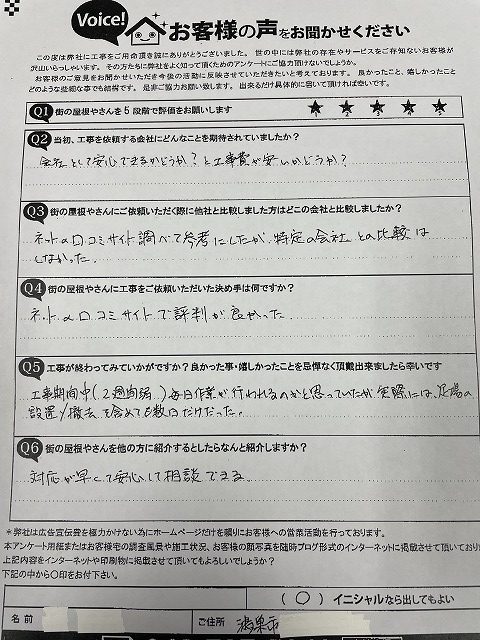 Voice!
お客様の声をお聞かせください
この度は弊社に工事をご用命頂き誠にありがとうございました。世の中には弊社の存在やサービスをご存知ないお客様が
沢山いらっしゃいます。その方たちに弊社をよく知って頂くためのアンケートにご協力頂けないでしょうか。
お客様のご意見をお聞かせいただき今後の活動に反映させていただきたいと考えております。良かったこと、嬉しかったこと
どのような些細な事でも結構です。是非ご協力お願い致します。出来るだけ具体的に書いて頂ければ幸いです。
Q1 街の屋根やさんを5段階で評価をお願いします
1 2 3 4 5
Q2 当初、工事を依頼する会社にどんなことを期待されていましたか?
会社として安心できるかどうか?と工事費が安いかどうか?
Q3 街の屋根やさんにご依頼いただく際に他社と比較しました方はどこの会社と比較しましたか?
ネットの口コミサイト調べて参考にしたが、特定の会社との比較は
しなかった。
Q4 街の屋根やさんに工事をご依頼いただいた決め手は何ですか?
ネットの口コミサイトで評判が良かった
Q5 工事が終わってみていかがですか?良かった事・嬉しかったことを忌憚なく頂戴出来ましたら幸いです
工事期間中(2週間弱)毎日作業が行われるのかと思っていたが、実際には、足場の
設置/撤去を含めても数日だけだった。
Q6 街の屋根やさんを他の方に紹介するとしたらなんと紹介しますか?
対応が早くて安心して相談できる
*弊社は広告宣伝費を極力かけない為にホームページだけを頼りにお客様への営業活動を行っております。
本アンケート用紙またはお客様宅の調査風景や施工状況、お客様の顔写真を随時ブログ形式のインターネットに掲載させて頂いており
上記内容をインターネットや印刷物に掲載させて頂いてもよろしいでしょうか?
下記の中から○印をお付下さい。
(○)イニシャルなら出してもよい
名前
ご住所 鴻巣市